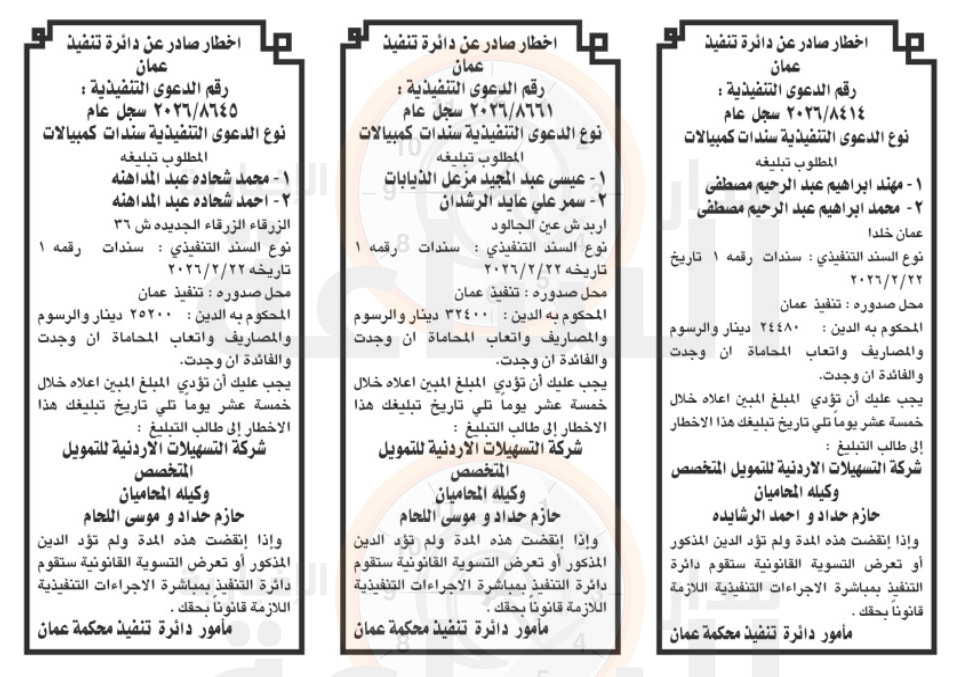 اخطار صادر عن دائرة تنفيذ
عمان
رقم الدعوى التنفيذية :
٢٠٢٦/٨٤١٤ سجل عام
نوع الدعوى التنفيذية سندات كمبيالات
المطلوب تبليغه
١- مهند ابراهيم عبد الرحيم مصطفى
٢- محمد ابراهيم عبد الرحيم مصطفى
عمان خلدا
نوع السند التنفيذي : سندات رقمه ١ تاريخ
٢٠٢٦/٢/٢٢
محل صدوره : تنفيذ عمان
المحكوم به الدين : ٢٤٤٨٠ دينار والرسوم
والمصاريف واتعاب المحاماة ان وجدت
والفائدة ان وجدت.
يجب عليك أن تؤدي المبلغ المبين اعلاه خلال
خمسة عشر يوماً تلي تاريخ تبليغك هذا الاخطار
إلى طالب التبليغ :
شركة التسهيلات الاردنية للتمويل المتخصص
وكيله المحاميان
حازم حداد و احمد الرشايده
وإذا إنقضت هذه المدة ولم تؤد الدين المذكور
أو تعرض التسوية القانونية ستقوم دائرة
التنفيذ بمباشرة الاجراءات التنفيذية اللازمة
قانوناً بحقك .
مأمور دائرة تنفيذ محكمة عمان
اخطار صادر عن دائرة تنفيذ
عمان
رقم الدعوى التنفيذية :
٢٠٢٦/٨٦٦١ سجل عام
نوع الدعوى التنفيذية سندات كمبيالات
المطلوب تبليغه
١- عيسى عبد المجيد مزعل الذيابات
٢- سمر علي عايد الرشدان
اربد ش عين الجالود
نوع السند التنفيذي : سندات رقمه ١
تاريخه ٢٠٢٦/٢/٢٢
محل صدوره : تنفيذ عمان
المحكوم به الدين : ٣٢٤٠٠ دينار والرسوم
والمصاريف واتعاب المحاماة ان وجدت
والفائدة ان وجدت.
يجب عليك أن تؤدي المبلغ المبين اعلاه خلال
خمسة عشر يوماً تلي تاريخ تبليغك هذا
الاخطار إلى طالب التبليغ :
شركة التسهيلات الاردنية للتمويل
المتخصص
وكيله المحاميان
حازم حداد و موسى اللحام
وإذا إنقضت هذه المدة ولم تؤد الدين
المذكور أو تعرض التسوية القانونية ستقوم
دائرة التنفيذ بمباشرة الاجراءات التنفيذية
اللازمة قانوناً بحقك .
مأمور دائرة تنفيذ محكمة عمان
اخطار صادر عن دائرة تنفيذ
عمان
رقم الدعوى التنفيذية :
٢٠٢٦/٨٦٤٥ سجل عام
نوع الدعوى التنفيذية سندات كمبيالات
المطلوب تبليغه
١- محمد شحاده عبد المداهنه
٢- احمد شحاده عبد المداهنه
الزرقاء الزرقاء الجديده ش ٣٦
نوع السند التنفيذي : سندات رقمه ١
تاريخه ٢٠٢٦/٢/٢٢
محل صدوره : تنفيذ عمان
المحكوم به الدين : ٢٥٢٠٠ دينار والرسوم
والمصاريف واتعاب المحاماة ان وجدت
والفائدة ان وجدت.
يجب عليك أن تؤدي المبلغ المبين اعلاه خلال
خمسة عشر يوماً تلي تاريخ تبليغك هذا
الاخطار إلى طالب التبليغ :
شركة التسهيلات الاردنية للتمويل
المتخصص
وكيله المحاميان
حازم حداد و موسى اللحام
وإذا إنقضت هذه المدة ولم تؤد الدين
المذكور أو تعرض التسوية القانونية ستقوم
دائرة التنفيذ بمباشرة الاجراءات التنفيذية
اللازمة قانوناً بحقك .
مأمور دائرة تنفيذ محكمة عمان